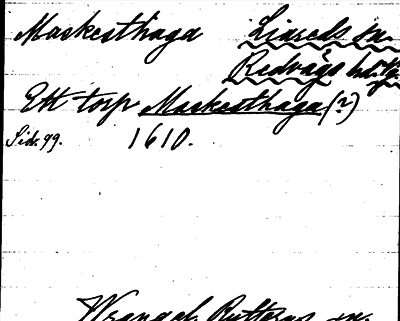 Maskesthaga Liareds sn.
Redvägs hd.
Ett torp Maskesthaga (?)
Sid. 99. 1610.
Wrangel,